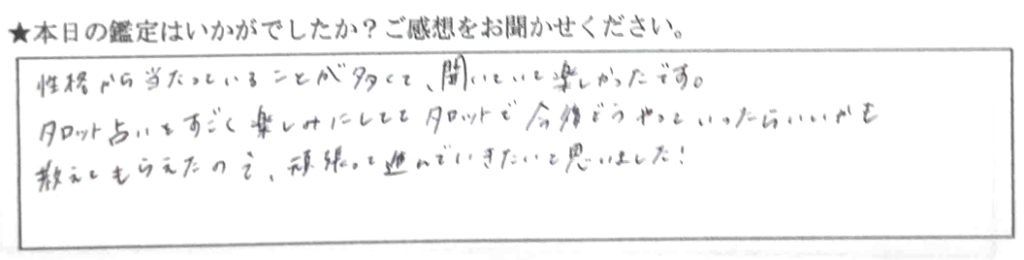 ★本日の鑑定はいかがでしたか？ご感想をお聞かせください。
性格から当たっていることが多くて、聞いていて楽しかったです。
タロット占いもすごく楽しみにしててタロットで今後どうやっていったらいいかも
教えてもらえたので、頑張って進んでいきたいと思いました！